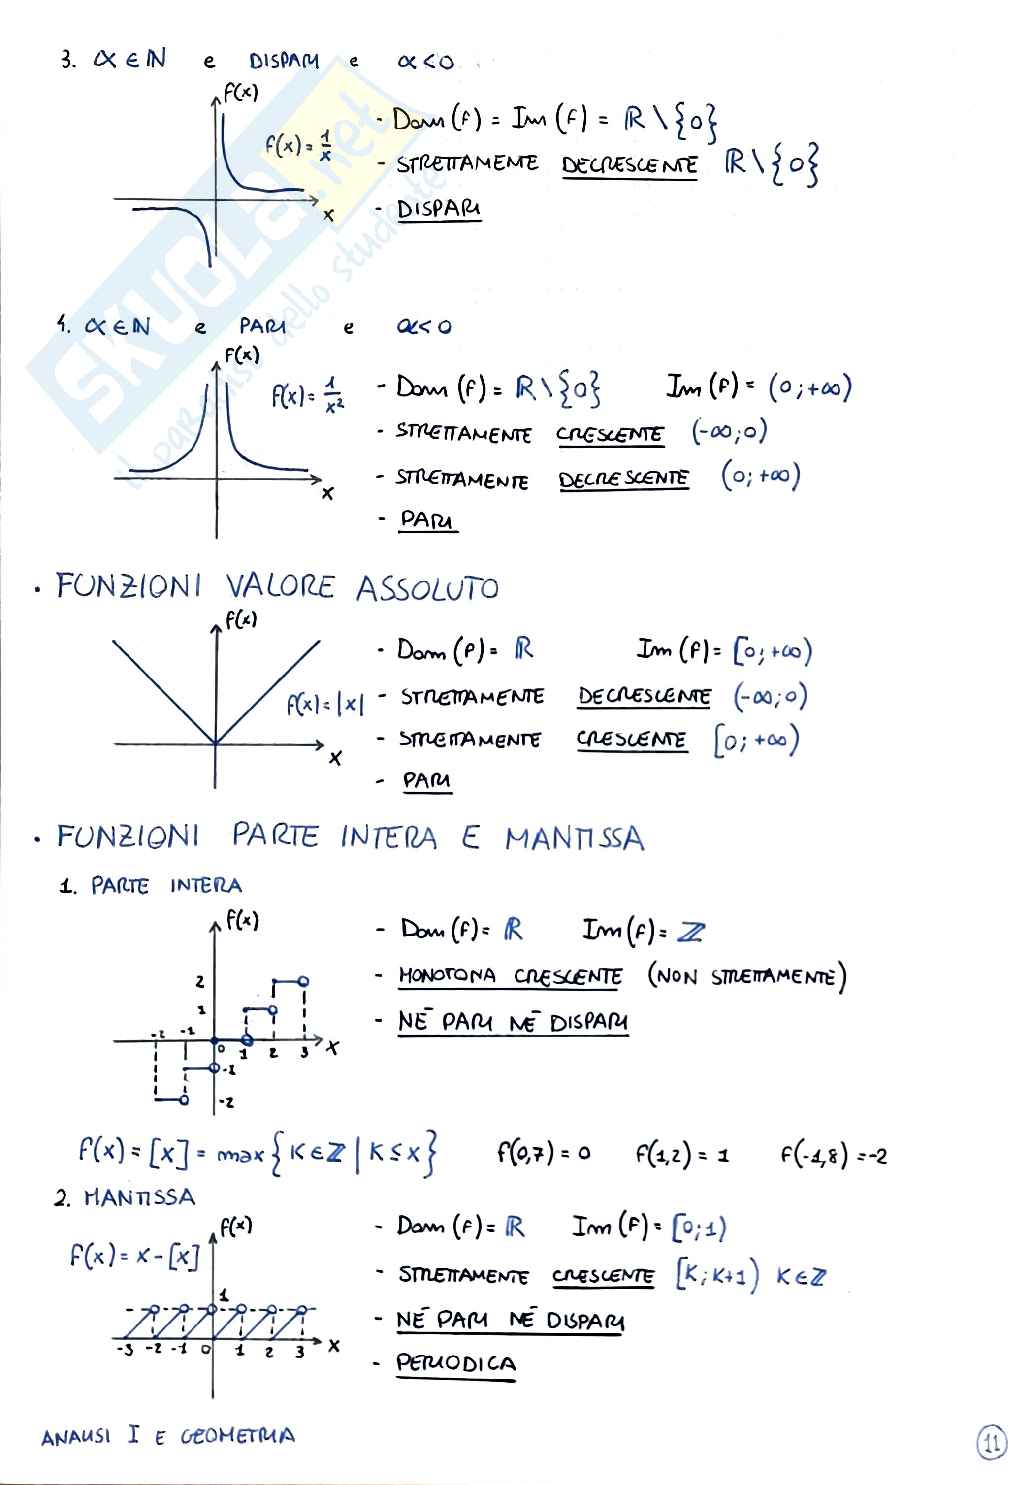 3. α ∈ ℕ e DISPARI e α < 0
f(x)
f(x) = 1/x
x
- Dom (f) = Im (f) = ℝ \ {0}
- STRETTAMENTE DECRESCENTE ℝ \ {0}
- DISPARI
SKUOLA.net
il paradiso dello studente
4. α ∈ ℕ e PARI e α < 0
f(x)
f(x) = 1/x²
x
- Dom (f) = ℝ \ {0} Im (f) = (0; +∞)
- STRETTAMENTE CRESCENTE (-∞; 0)
- STRETTAMENTE DECRESCENTE (0; +∞)
- PARI
· FUNZIONI VALORE ASSOLUTO
f(x)
f(x) = |x|
x
- Dom (f) = ℝ Im (f) = [0; +∞)
- STRETTAMENTE DECRESCENTE (-∞; 0)
- STRETTAMENTE CRESCENTE [0; +∞)
- PARI
· FUNZIONI PARTE INTERA E MANTISSA
1. PARTE INTERA
f(x)
2
1
-2 -1 0 1 2 3 x
-1
-2
- Dom (f) = ℝ Im (f) = ℤ
- MONOTONA CRESCENTE (NON STRETTAMENTE)
- NÉ PARI NÉ DISPARI
f(x) = [x] = max {K ∈ ℤ | K ≤ x} f(0,7) = 0 f(1,2) = 1 f(-1,8) = -2
2. MANTISSA
f(x)
f(x) = x - [x]
1
-3 -2 -1 0 1 2 3 x
- Dom (f) = ℝ Im (f) = [0; 1)
- STRETTAMENTE CRESCENTE [K; K+1) K ∈ ℤ
- NÉ PARI NÉ DISPARI
- PERIODICA
ANALISI I E GEOMETRIA
11